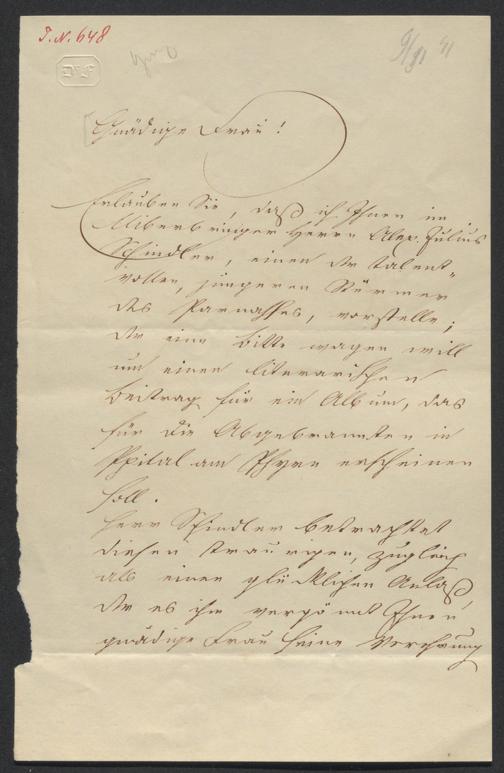 I.N. 648
Gnädige Frau!
Erlauben Sie, daß ich Ihnen im
Überbringer Herrn Alex. Julius
Schindler, einen der talent-
vollen, jüngeren Stürmer
des Parnasses, vorstelle;
der eine Bitte wagen will
um einen literarischen
Beitrag für ein Album, das
für die Abgebrannten in
Spital am Pyhrn erscheinen
soll.
Herr Schindler betrachtet
diesen traurigen, zugleich
als einen glücklichen Anlaß,
der es ihm vergönnt Ihnen
gnädige Frau seine Verehrung